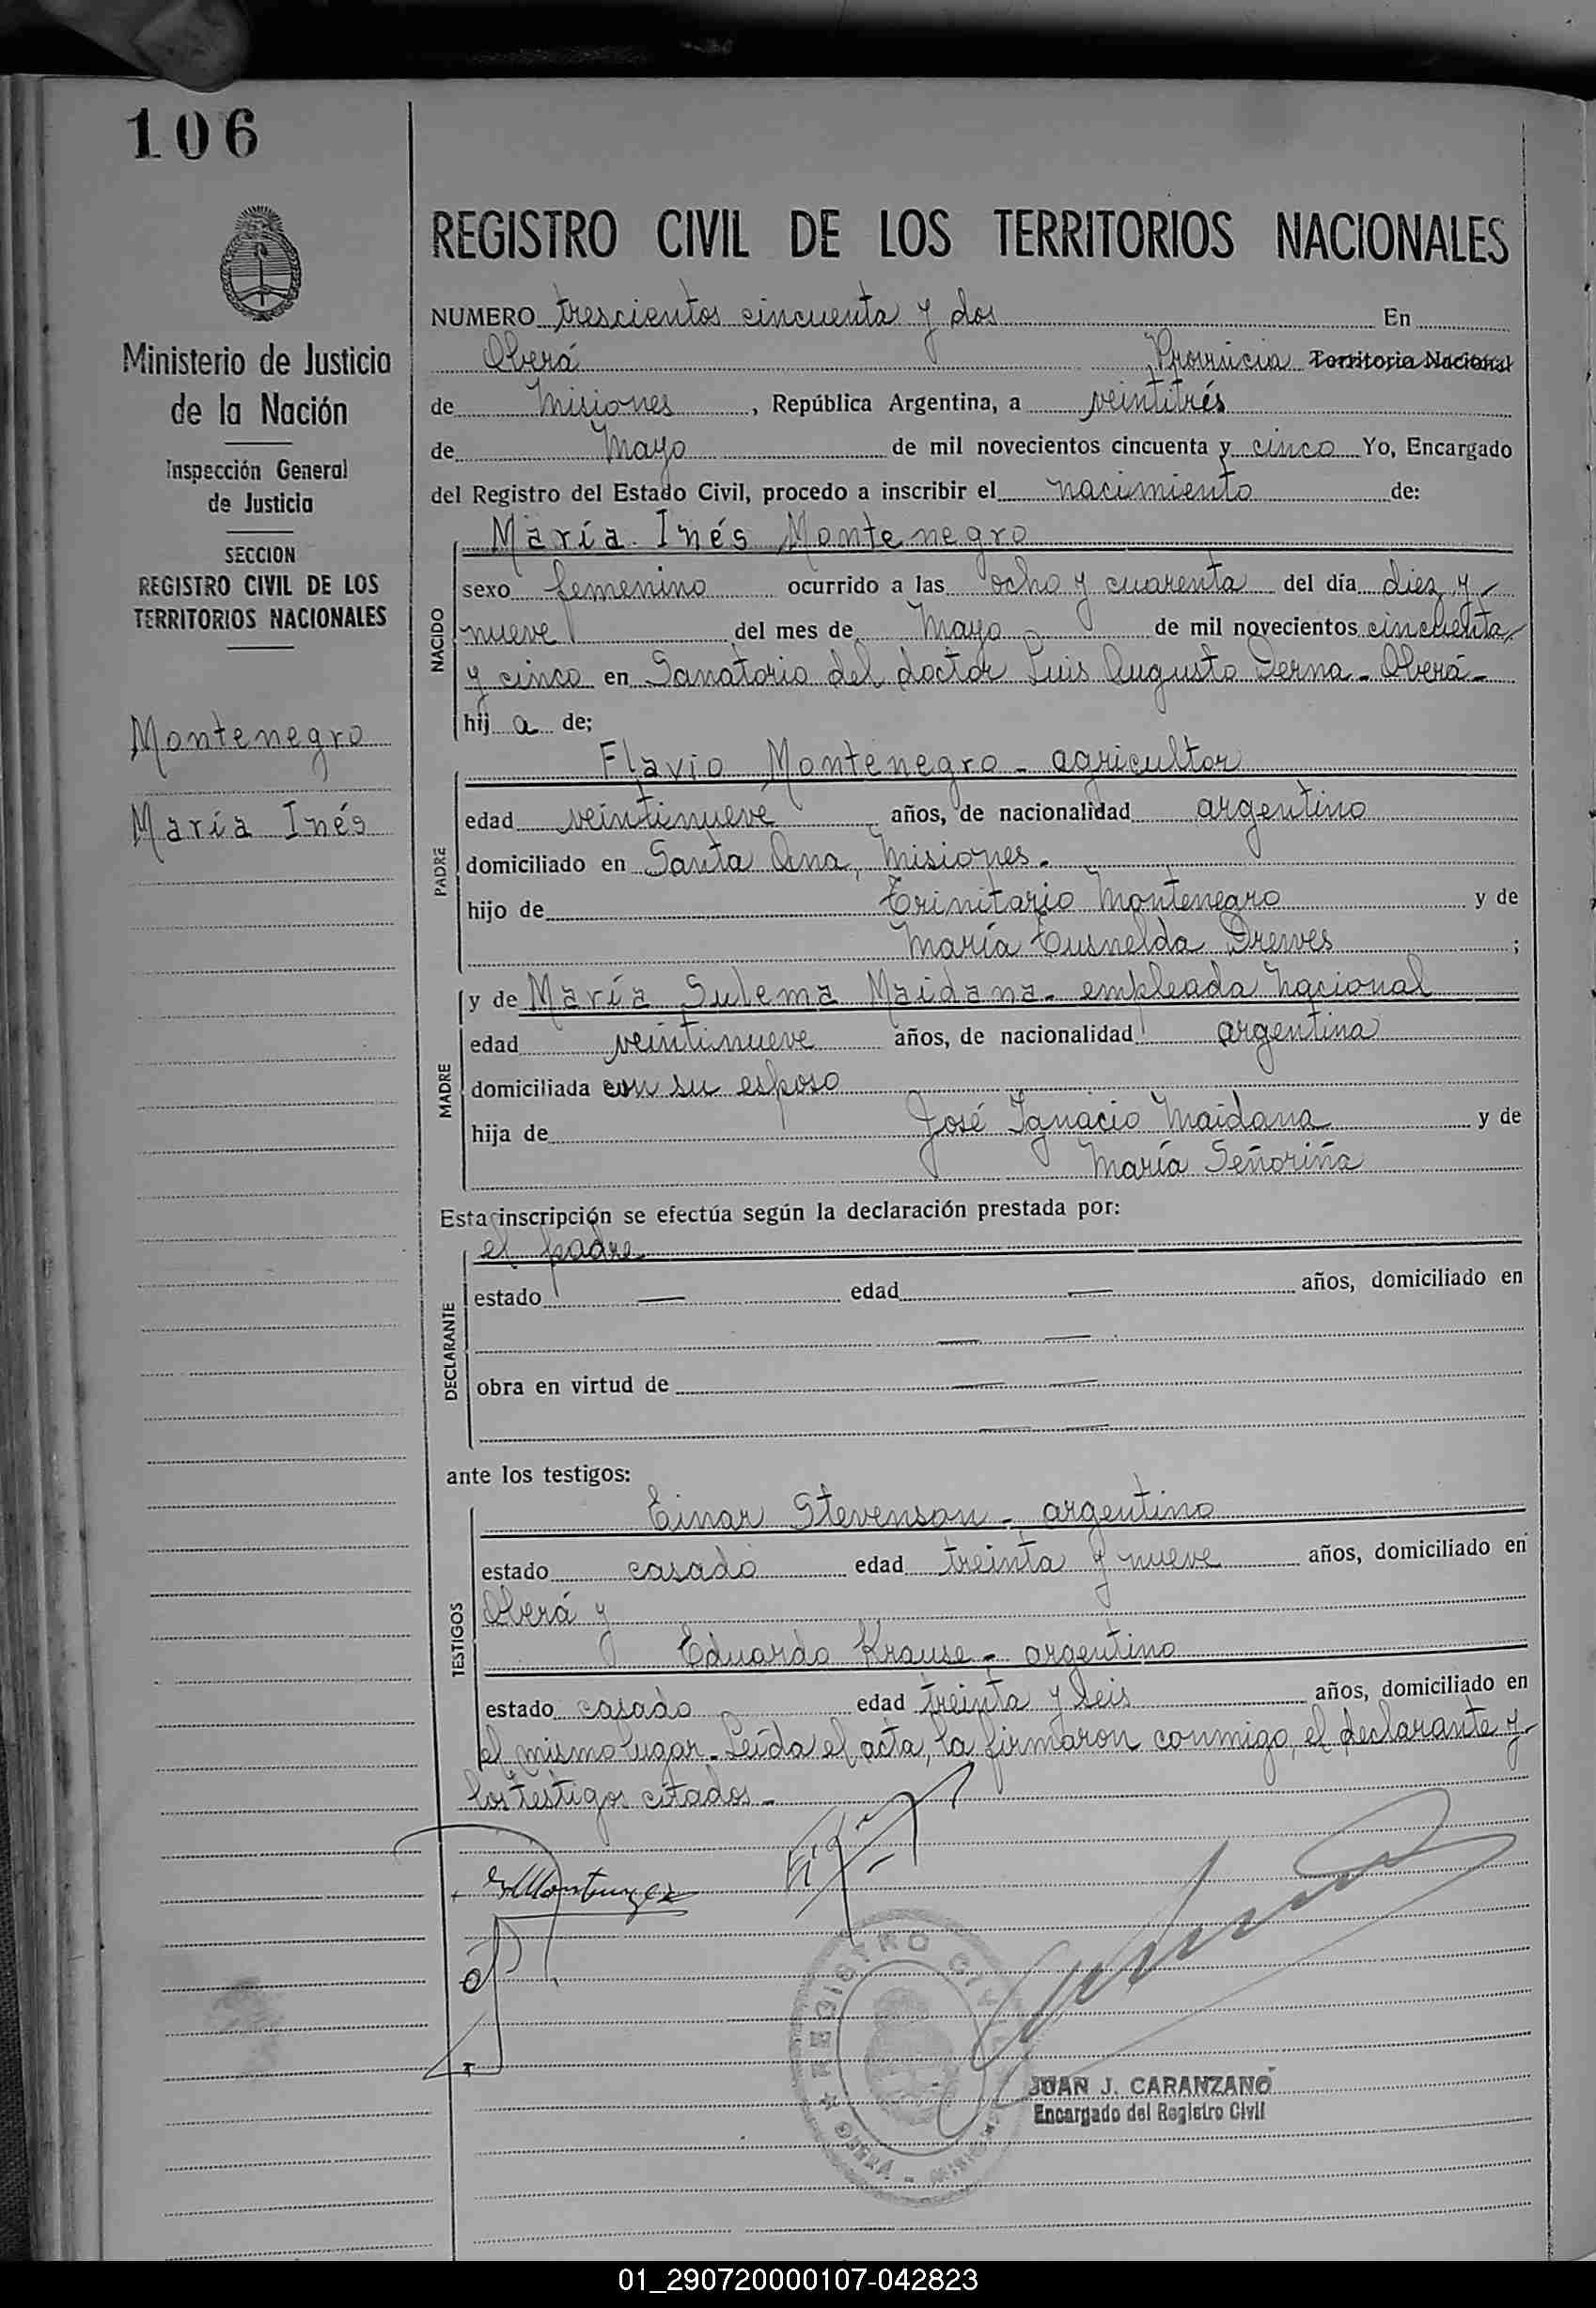 106
REGISTRO CIVIL DE LOS TERRITORIOS NACIONALES
Ministerio de Justicia
de la Nación
Inspección General
de Justicia
SECCION
REGISTRO CIVIL DE LOS
TERRITORIOS NACIONALES
Montenegro
María Inés
NUMERO trescientos cincuenta y dos En
Oberá Provincia Territorio Nacional
de Misiones, República Argentina, a veintitrés
de Mayo de mil novecientos cincuenta y cinco Yo, Encargado
del Registro del Estado Civil, procedo a inscribir el nacimiento de:
NACIDO
María Inés Montenegro
sexo femenino ocurrido a las ocho y cuarenta del día diez y
nueve del mes de Mayo de mil novecientos cincuenta
y cinco en Sanatorio del doctor Luis Augusto Derna - Oberá -
hij a de;
PADRE
Flavio Montenegro - agricultor
edad veintinueve años, de nacionalidad argentino
domiciliado en Santa Ana, Misiones.
hijo de Trinitario Montenegro y de
María Tusnelda Drewes ;
MADRE
y de María Sulema Maidana - empleada nacional
edad veintinueve años, de nacionalidad argentina
domiciliada con su esposo
hija de José Ignacio Maidana y de
María Señoriña
Esta inscripción se efectúa según la declaración prestada por:
DECLARANTE
el padre
estado — edad — años, domiciliado en
— —
obra en virtud de — —
— —
ante los testigos:
TESTIGOS
Einar Stevenson - argentino
estado casado edad treinta y nueve años, domiciliado en
Oberá y
Eduardo Krause - argentino
estado casado edad treinta y seis años, domiciliado en
el mismo lugar. Leída el acta, la firmaron conmigo, el declarante y
los testigos citados.-
REGISTRO CI
OBERÁ - MISIONES
JUAN J. CARANZANO
Encargado del Registro Civil
01_290720000107-042823